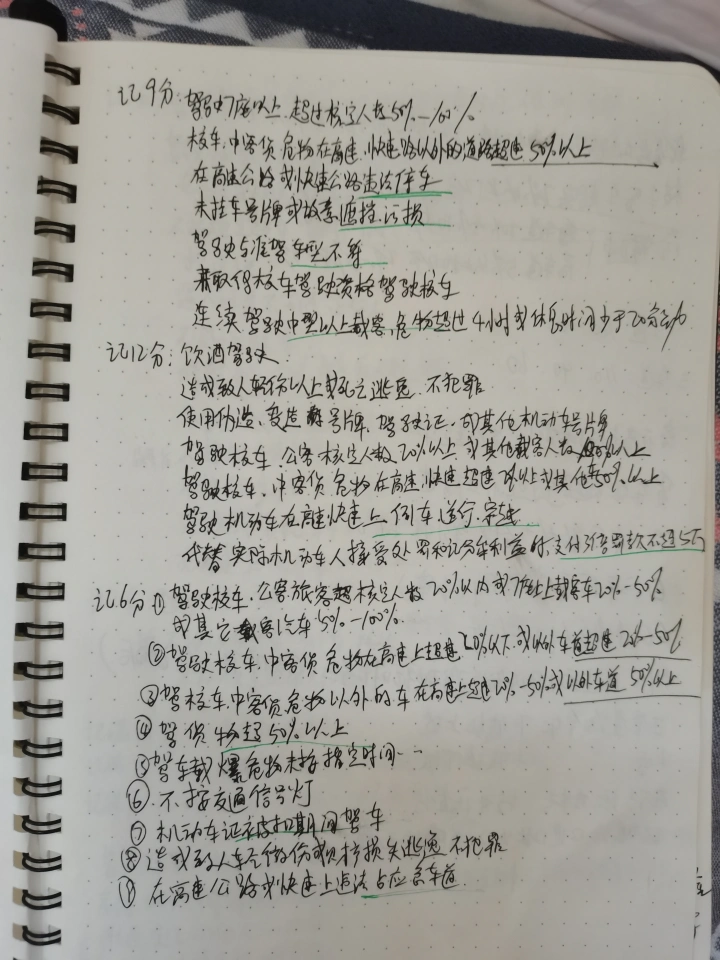 记9分: 驾驶7座以上.超过核定人数50%-100%
校车.中客货危物在高速.快速路以外的道路超速50%以上
在高速公路或快速公路违法停车
未挂车号牌或故意遮挡.污损
驾驶与准驾车型不符
未取得校车驾驶资格驾驶校车
连续驾驶中型以上载客、危物超过4小时或休息时间少于20分钟
记12分: 饮酒驾驶.
造成致人轻伤以上或死亡逃逸 不犯罪
使用伪造、变造 号牌、驾驶证.或其他机动车号牌
驾驶校车.公客核定人数20%以上或其他载客人数 以上
驾驶校车.中客货危物在高速.快速超速 以上或其他50%以上
驾驶机动车在高速快速上倒车逆行.穿越
代替实际机动车人接受处罚和记分牟利益时,支付 罚款不超5万
记6分①驾驶校车.公客旅客超核定人数20%以内或7座以上载客车20%-50%
或其它载客汽车50%-100%.
②驾驶校车.中客货危物在高速上超速20%以下.或以外车道超速20%-50%
③驾校车.中客货危物以外的车在高速上超速20%-50%或以外车道50%以上
④驾货物超50%以上
⑤驾车载爆危物未按指定时间…
⑥.不按交通信号灯
⑦机动车证被扣期间驾车
⑧造成致人轻微伤或财产损失逃逸 不犯罪
⑨在高速公路或快速上违法占应急车道.